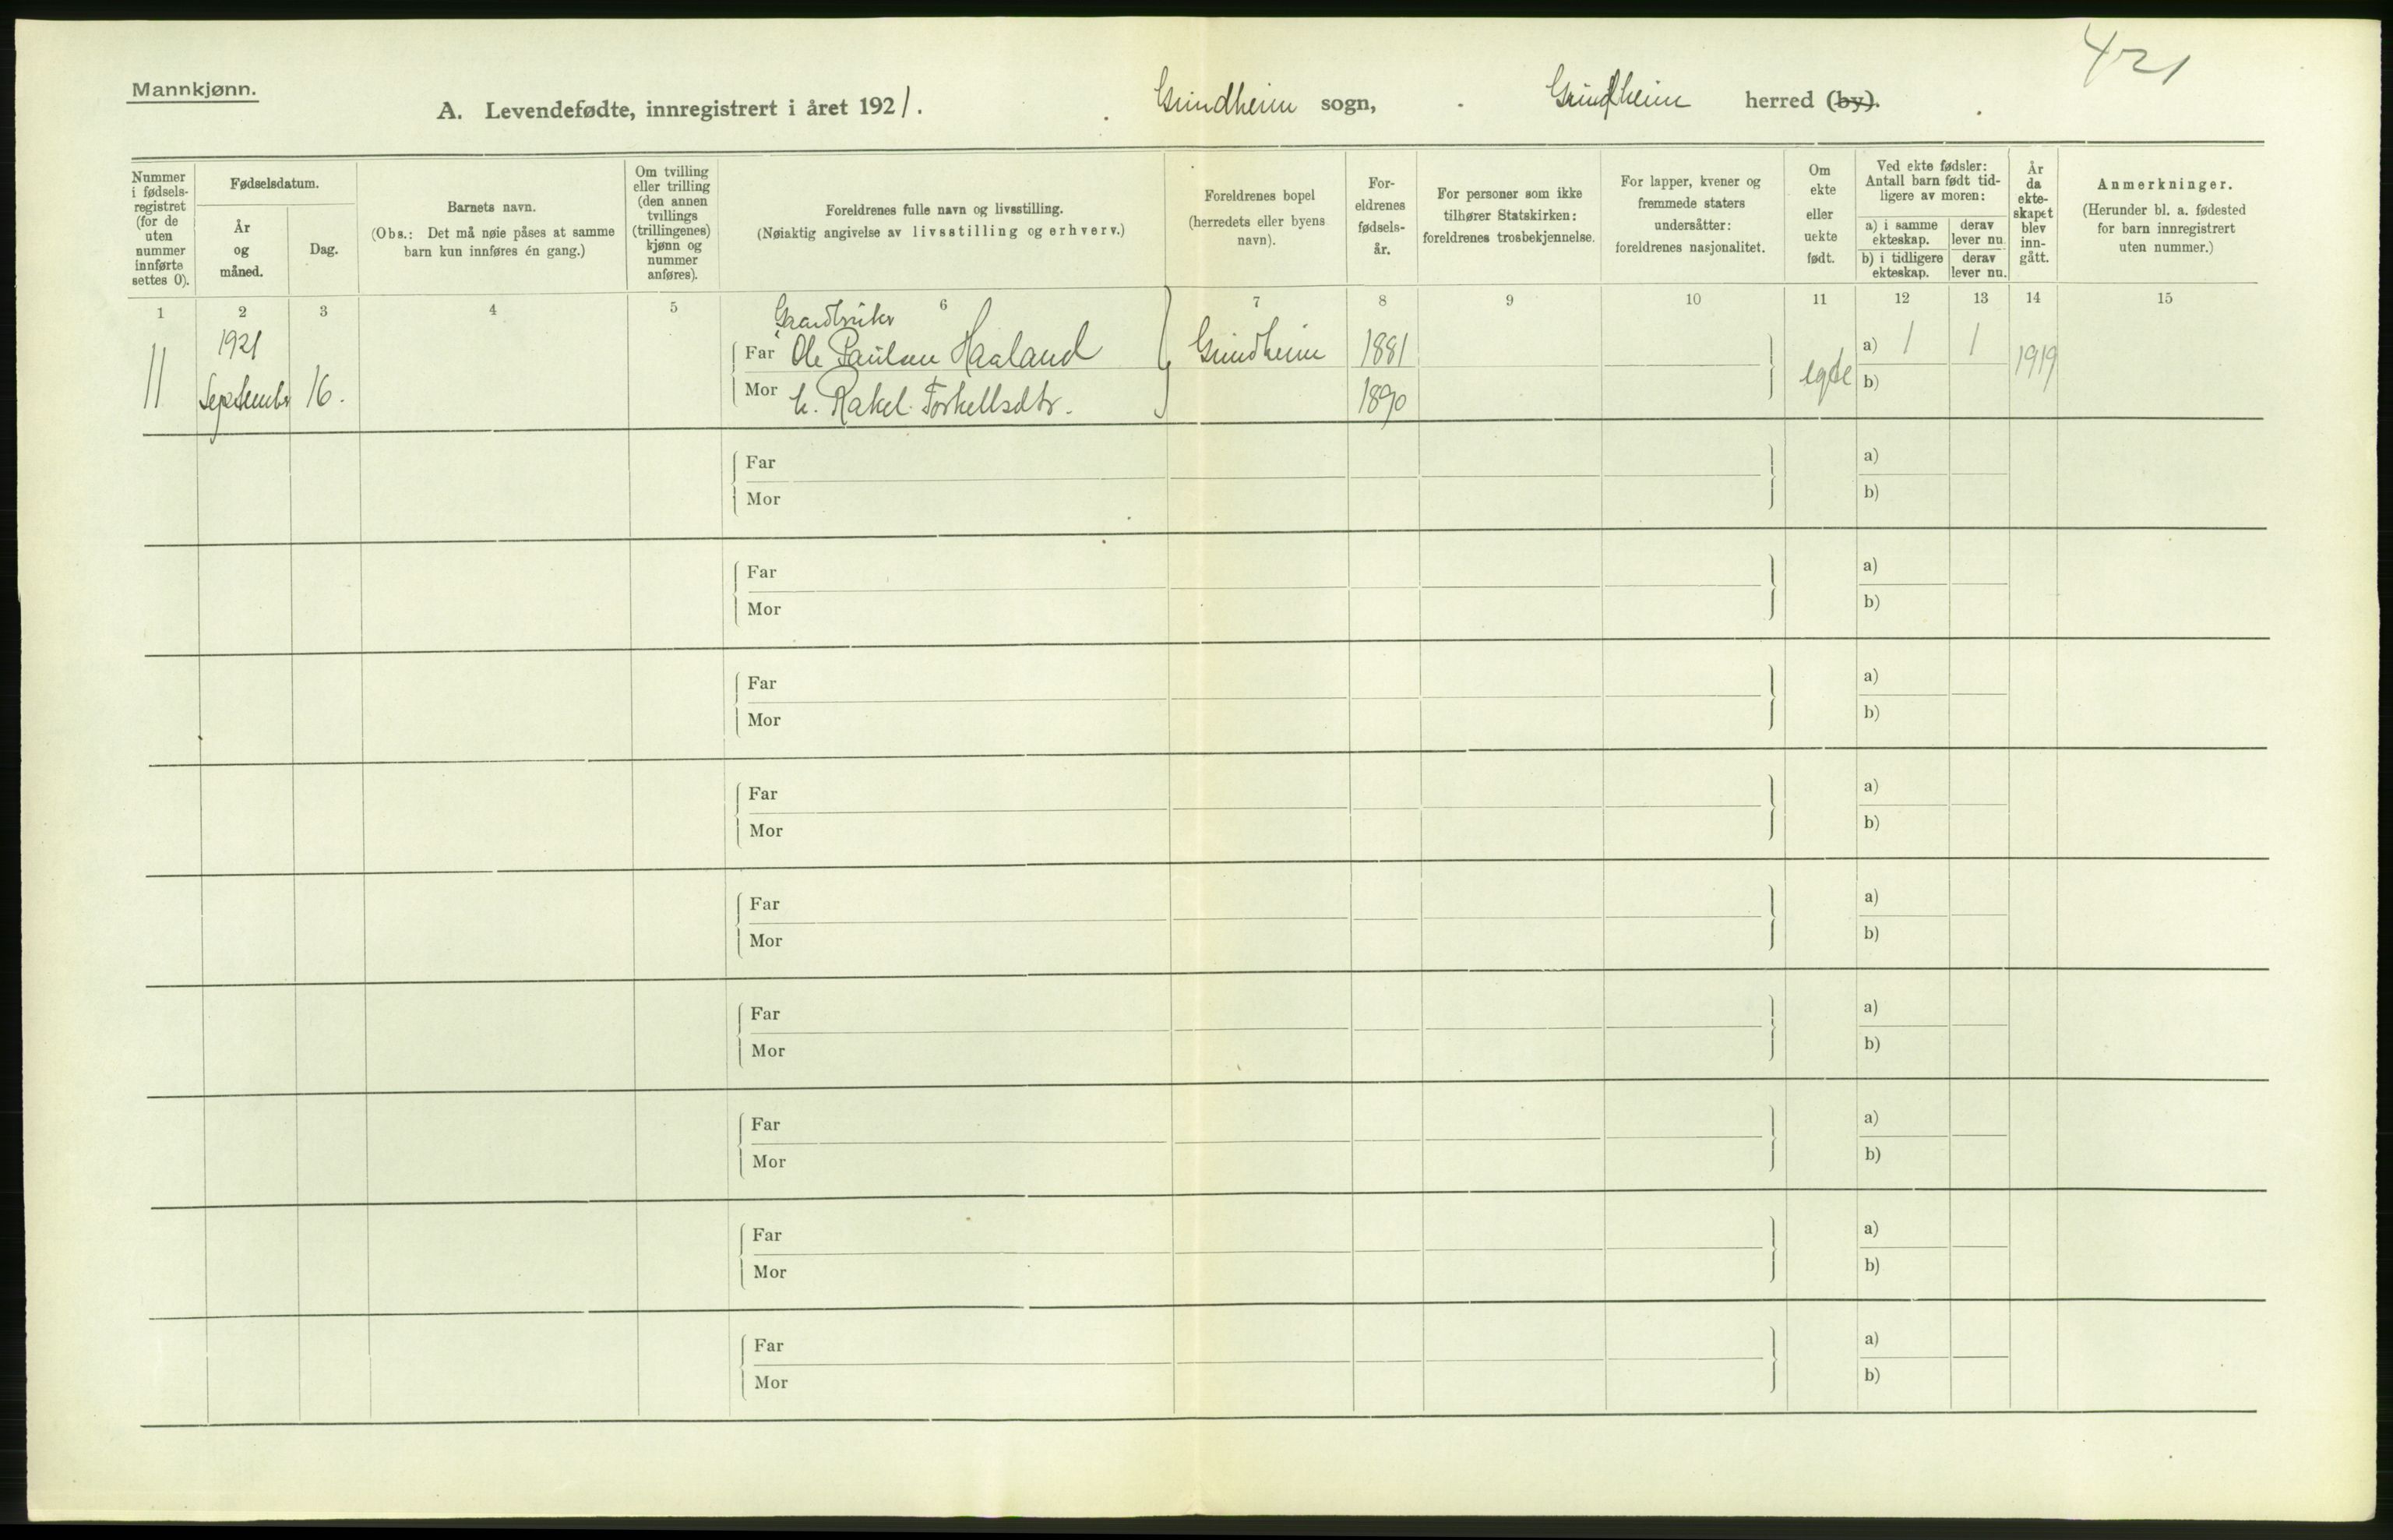 421
Mannkjønn.
A. Levendefødte, innregistrert i året 1921. Grindheim sogn, Grindheim herred (by).
Nummer
i fødsels-
registret
(for de
uten
nummer
innførte
settes 0).
Fødselsdatum.
År
og
måned.
Dag.
Barnets navn.
(Obs.: Det må nøie påses at samme
barn kun innføres én gang.)
Om tvilling
eller trilling
(den annen
tvillings
(trillingenes)
kjønn og
nummer
anføres).
Foreldrenes fulle navn og livsstilling.
(Nøiaktig angivelse av livsstilling og erhverv.)
Foreldrenes bopel
(herredets eller byens
navn).
For-
eldrenes
fødsels-
år.
For personer som ikke
tilhører Statskirken:
foreldrenes trosbekjennelse.
For lapper, kvener og
fremmede staters
undersåtter:
foreldrenes nasjonalitet.
Om
ekte
eller
uekte
født.
Ved ekte fødsler:
Antall barn født tid-
ligere av moren:
a) i samme
ekteskap.
derav
lever nu.
b) i tidligere
ekteskap.
derav
lever nu.
År
da
ekte-
skapet
blev
inn-
gått.
Anmerkninger.
(Herunder bl. a. fødested
for barn innregistrert
uten nummer.)
1 2 3 4 5 6 7 8 9 10 11 12 13 14 15
Gaardbruker
11 1921 Far Ole Paulsen Haaland Grindheim 1881 egte a) 1 1 1919
September 16. Mor h. Rakel Torkellsdtr. 1890 b)
Far a)
Mor b)
Far a)
Mor b)
Far a)
Mor b)
Far a)
Mor b)
Far a)
Mor b)
Far a)
Mor b)
Far a)
Mor b)
Far a)
Mor b)
Far a)
Mor b)